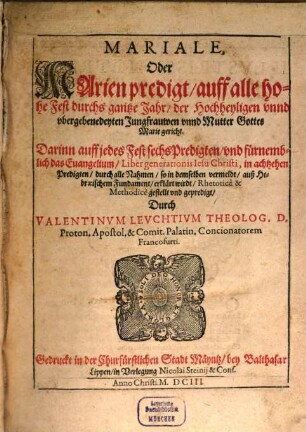 MARIALE,
Oder
MArien predigt / auff alle ho-
he Fest durchs gantze Jahr / der Hochheyligen vnnd
vbergebenedeyten Jungfrauwen vnnd Mutter Gottes
Marie gericht.
Darinn auff jedes Fest sechs Predigten / vnd fürnemb-
lich das Euangelium / Liber generationis Iesu Christi, in achtzehen
Predigten / durch alle Nahmen / so in demselben vermeldt / auß He-
braischem Fundament / erklärt würdt / Rhetoricè &
Methodicè gestellt vnd gepredigt /
Durch
VALENTINVM LEVCHTIVM THEOLOG. D.
Proton, Apostol, & Comit. Palatin, Concionatorem
Francofurti.
Gedruckt in der Churfürstlichen Stadt Mäyntz / bey Balthasar
Lippen / in Verlegung Nicolai Steinij & Cons.
Anno Christi M. DCIII.
MÜNCHEN